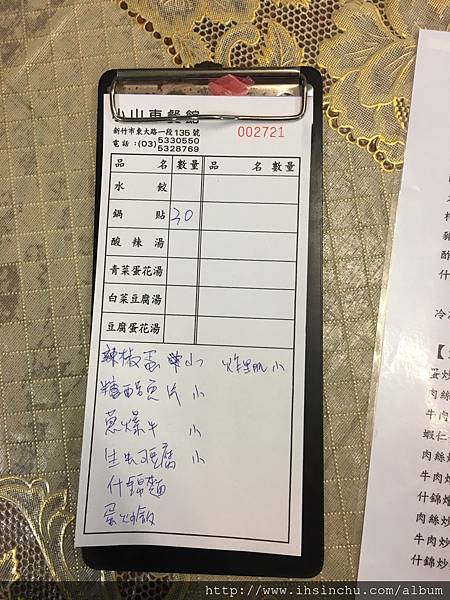 山東餐館
新竹市東大路一段135號
電話:(03)5330550
5328769
002721
品 名 數量 品 名 數量
水 餃
鍋 貼 30
酸 辣 湯
青菜蛋花湯
白菜豆腐湯
豆腐蛋花湯
辣椒 小 小
糖醋魚片 小
蔥爆牛 小
豆腐 小
什錦麵
蛋炒飯
冷
【
蛋炒
肉絲
牛肉
蝦仁
肉絲
牛肉炒
什錦燴
肉絲炒
牛肉炒
什錦炒
http://www.ihsinchu.com/album